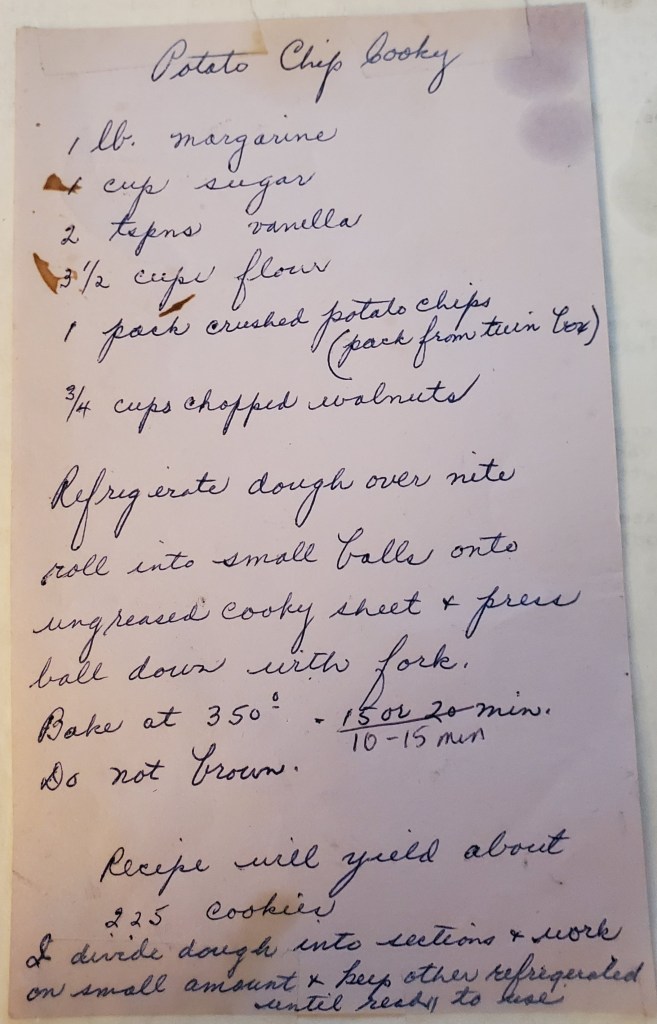 Potato Chip Cooky
1 lb. margarine
1 cup sugar
2 tspns vanilla
3 1/2 cups flour
1 pack crushed potato chips
(pack from twin box)
3/4 cups chopped walnuts
Refrigerate dough over nite
roll into small balls onto
ungreased cooky sheet & press
ball down with fork.
Bake at 350° - 15 or 20 min.
10-15 min
Do not brown.
Recipe will yield about
225 cookies
I divide dough into sections & work
on small amount & keep other refrigerated
until ready to use